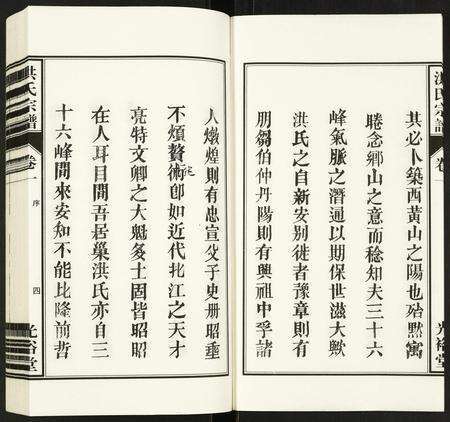 洪氏宗譜
卷一
光裕堂
其必卜築西黃山之陽也殆默寓
睠念鄉山之意而稔知夫三十六
峰氣脈之潛通以期保世滋大歟
洪氏之自新安別徙者豫章則有
朋芻伯仲丹陽則有興祖中孚諸
人燉煌則有忠宣父子史册昭垂
不煩贅術卽如近代北江之天才
亮特文卿之大魁多士固皆昭昭
在人耳目間吾居巢洪氏亦自三
十六峰間來安知不能比隆前哲
洪氏宗譜
卷一
序
四
光裕堂